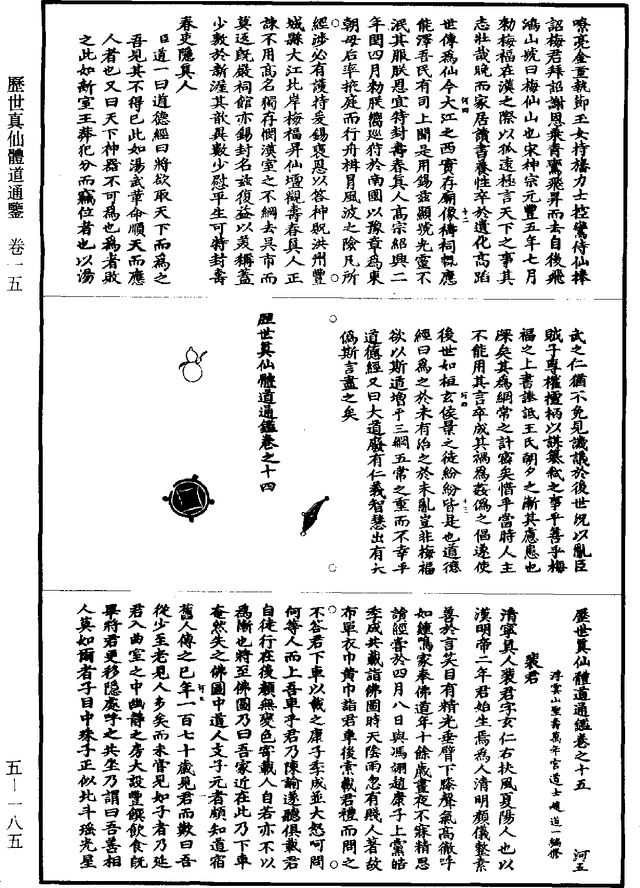 歷世真仙體道通鑒 卷一五
五—一八五
嘹亮金童執節玉女持旛力士控鸞侍仙捧
詔梅君拜詔謝恩乘青鸞飛昇而去自後飛
鴻山號曰梅仙山也宋神宗元豐五年七月
勑梅福在漢之際以孤遠極言天下之事其
志壯哉晚而家居讀書養性卒於遺化高蹈
世傳為仙今大江之西實存廟像禱祠輒應
能澤吾民有司上聞是用錫茲顯號光靈不
泯其服朕恩宜特封壽春真人高宗紹興二
年閏四月勑朕嚮巡狩於南國以豫章為東
朝母后率掖庭而行舟楫冒風波之險凡所
經涉必有護持爰錫褒恩以答神貺洪州豐
城縣大江北岸梅福昇仙壇觀壽春真人正
諫不用高名獨存憫漢室之不綱去吳市而
莫返既嚴祠館亦錫封名茲復益以美稱蓋
少敦於新渥其歆異數少慰平生可特封壽
春吏隱真人
臣道一曰道德經曰將欲取天下而為之
吾見其不得已此如湯武革命順天而應
人者也又曰天下神器不可為也為者敗
之此如新室王莽犯分而竊位者也以湯
武之仁猶不免見譏議於後世況以亂臣
賊子專權擅柄以謀篡弒之事乎善乎梅
福之上書譏詆王氏朝夕之漸其應慝也
深矣其為綱常之計密矣惜乎當時人主
不能用其言卒成其禍為姦偽之倡遂使
後世如桓玄侯景之徒紛紛皆是也道德
經曰為之於未有治之於未亂豈非梅福
欲以斯道增乎三綱五常之重而不幸乎
道德經又曰大道廢有仁義智慧出有大
偽斯言盡之矣
歷世真仙體道通鑑卷之十四
歷世真仙體道通鑑卷之十五 河五
浮雲山聖壽萬年宮道士趙道一編修
裴君
清寧真人裴君字玄仁右扶風夏陽人也以
漢明帝二年君始生焉為人清明顏儀整素
善於言笑目有精光垂臂下膝聲氣高徹呼
如鍾鳴家奉佛道年十餘歲晝夜不寐精思
讀經嘗於四月八日與馮翊趙康子上黨皓
季成共載詣佛圖時天陰雨忽有賤人著故
布單衣巾黃巾詣君車後索載君禮而問之
不荅君下車以載之康子季成並大怒呵問
何等人而上吾車乎君乃陳諭遂聽俱載君
自徒行在後顏無變色寄載人自若亦不以
為慚也將至佛圖乃曰吾家近在此乃下車
奄然失之佛圖中道人支子元者頗知道宿
舊人傳之已年一百七十歲見君而歎曰吾
從少至老見人多矣而未嘗見如子者乃延
君入曲室之中幽靜之房大設豐饌飲食既
畢將君更移隱處呼之共坐乃謂曰吾善相
人莫如爾者子目中珠子正似北斗瑤光星